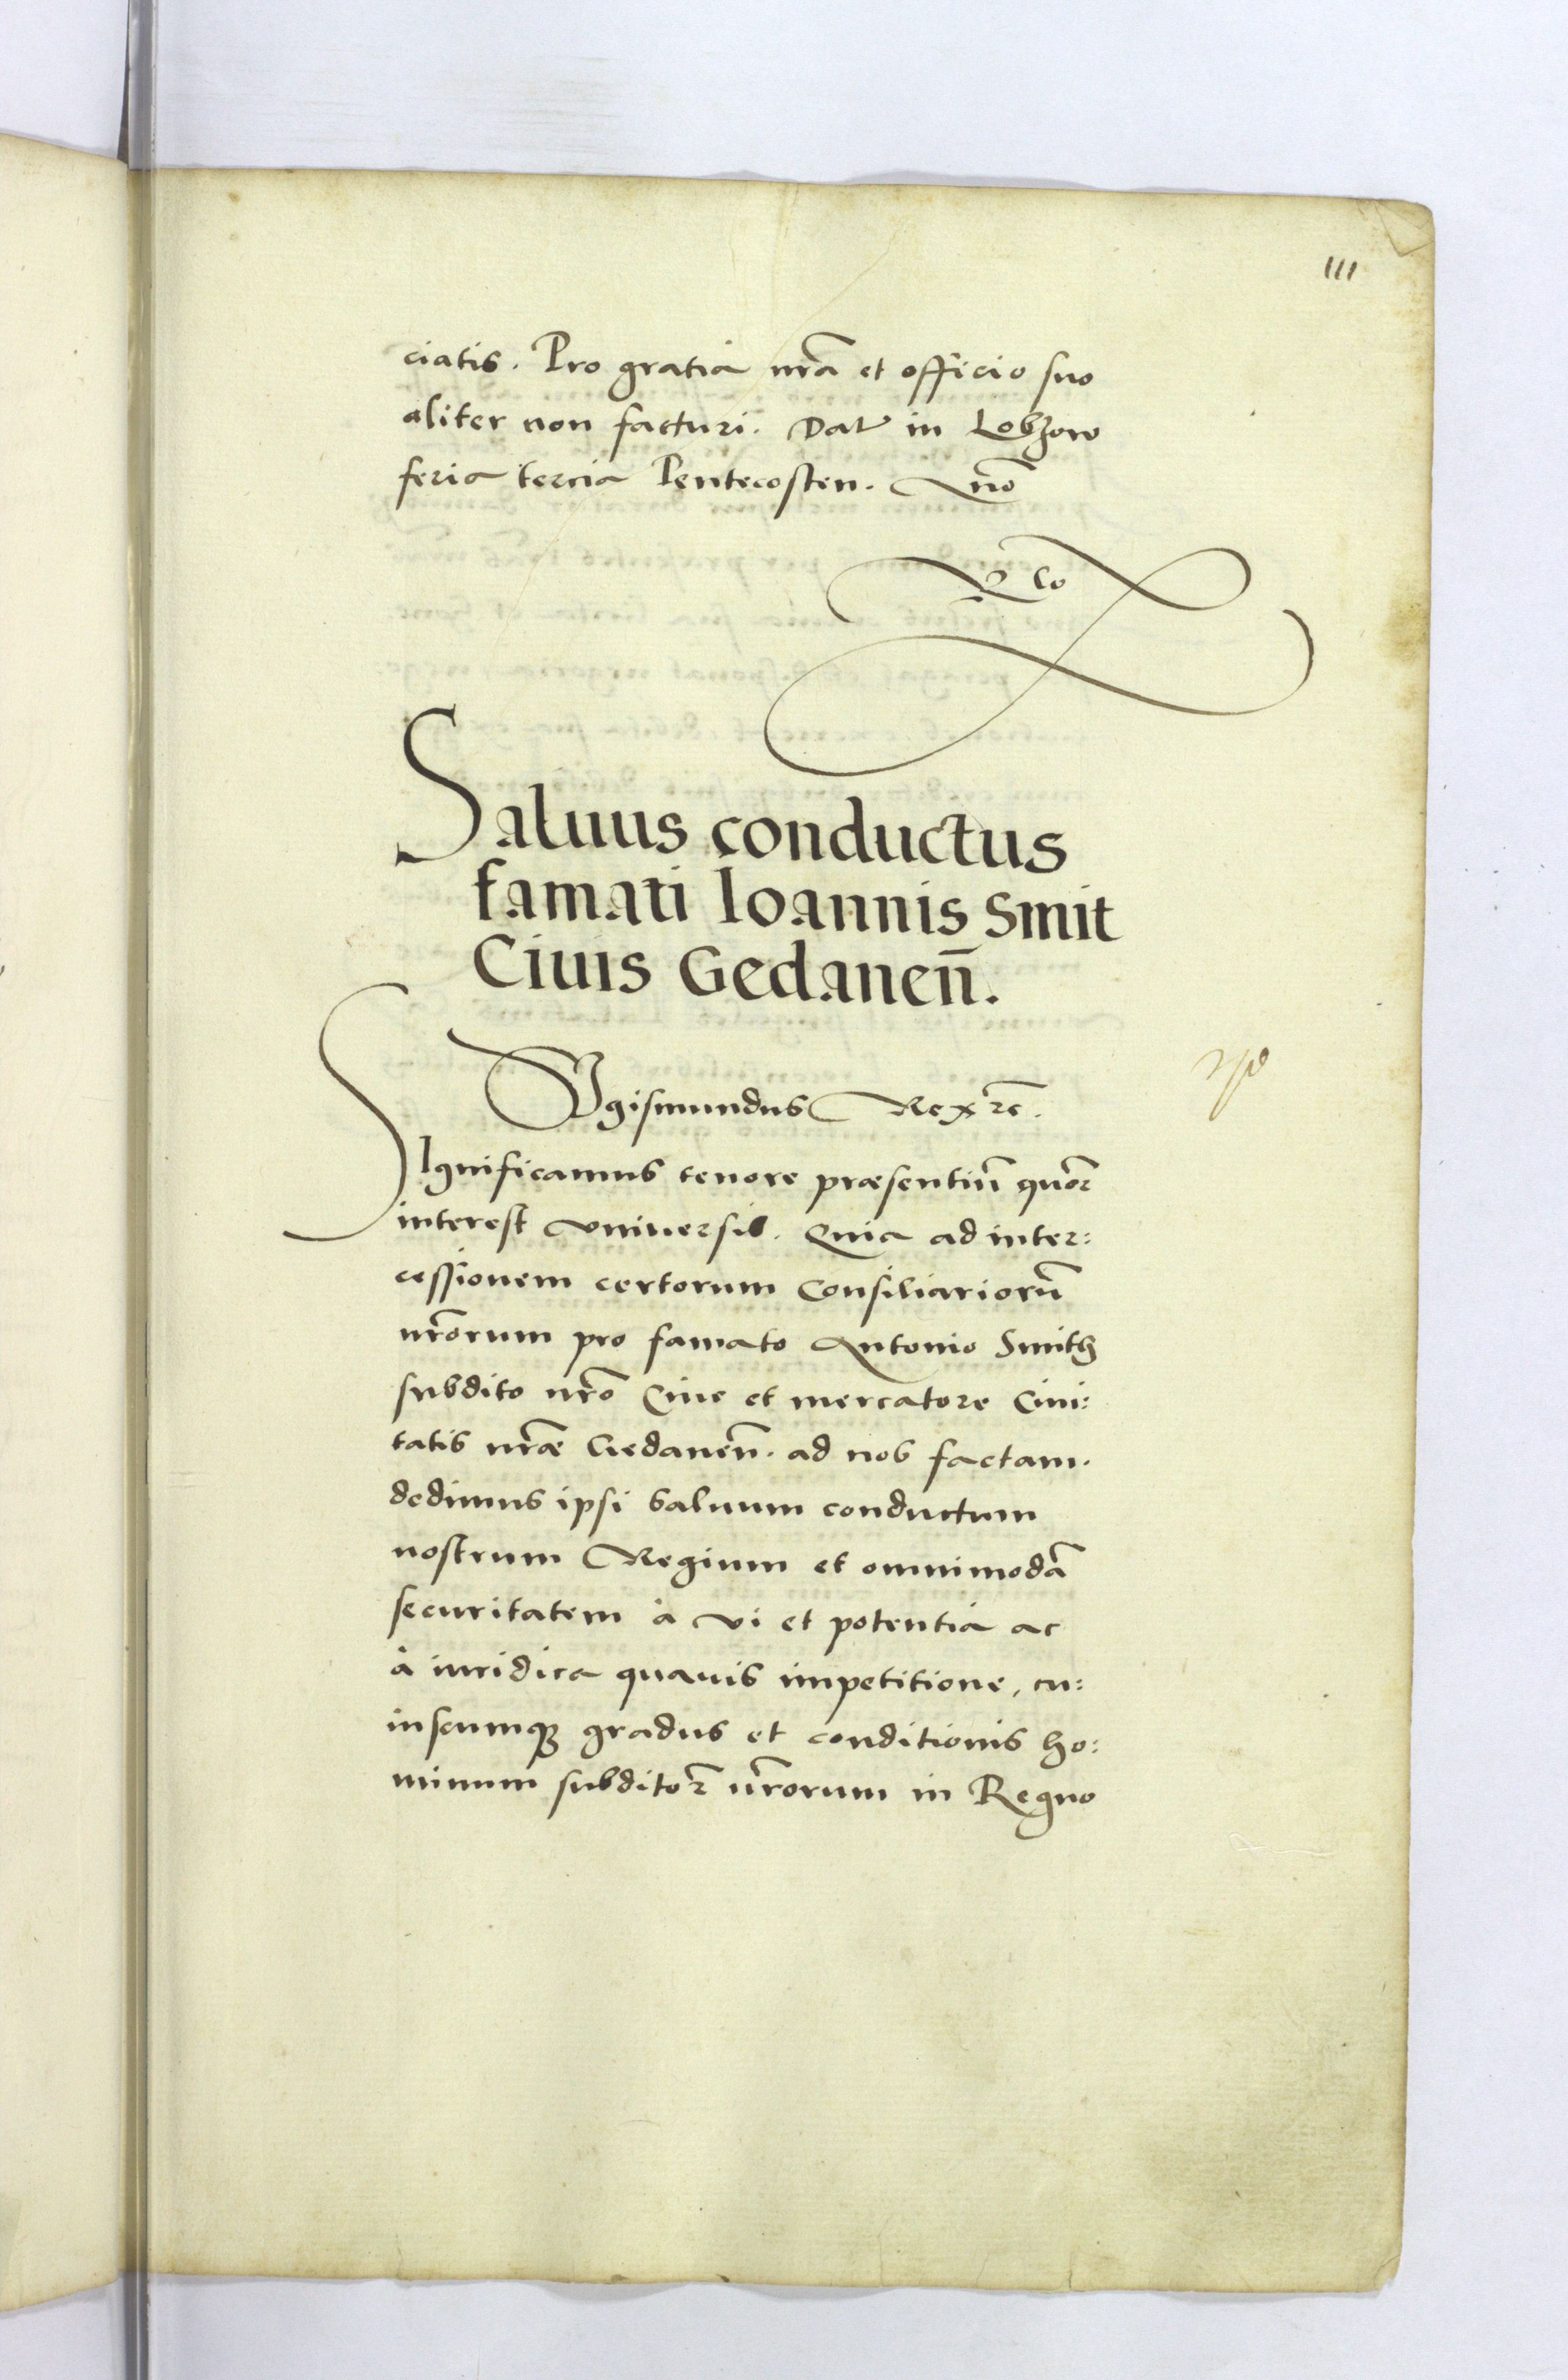 111
ciatis. Pro gratia nrã et officio suo
aliter non facturi. Dat in Lobzow
feria tercia Pentecosten. Anno
Saluus conductus
famati Ioannis Smit
Ciuis Gedaneñ.
Sigismundus Rex rc.
Significamus tenore præsentiũ quoꝝ
interest vniuersis. Quia ad inter:
cessionem certorum Consiliariorũ
nrõrum pro famato Antonio Smith
subdito nrõ Ciue et mercatore Ciui:
tatis nrãe Gedaneñ. ad nos factam.
dedimus ipsi saluum conductum
nostrum Regium et omnimodã
securitatem à vi et potentia ac
à iuridica quauis impetitione, cu:
iuscumqꝫ gradus et conditionis ho:
minum subditoꝝ nrõrum in Regno